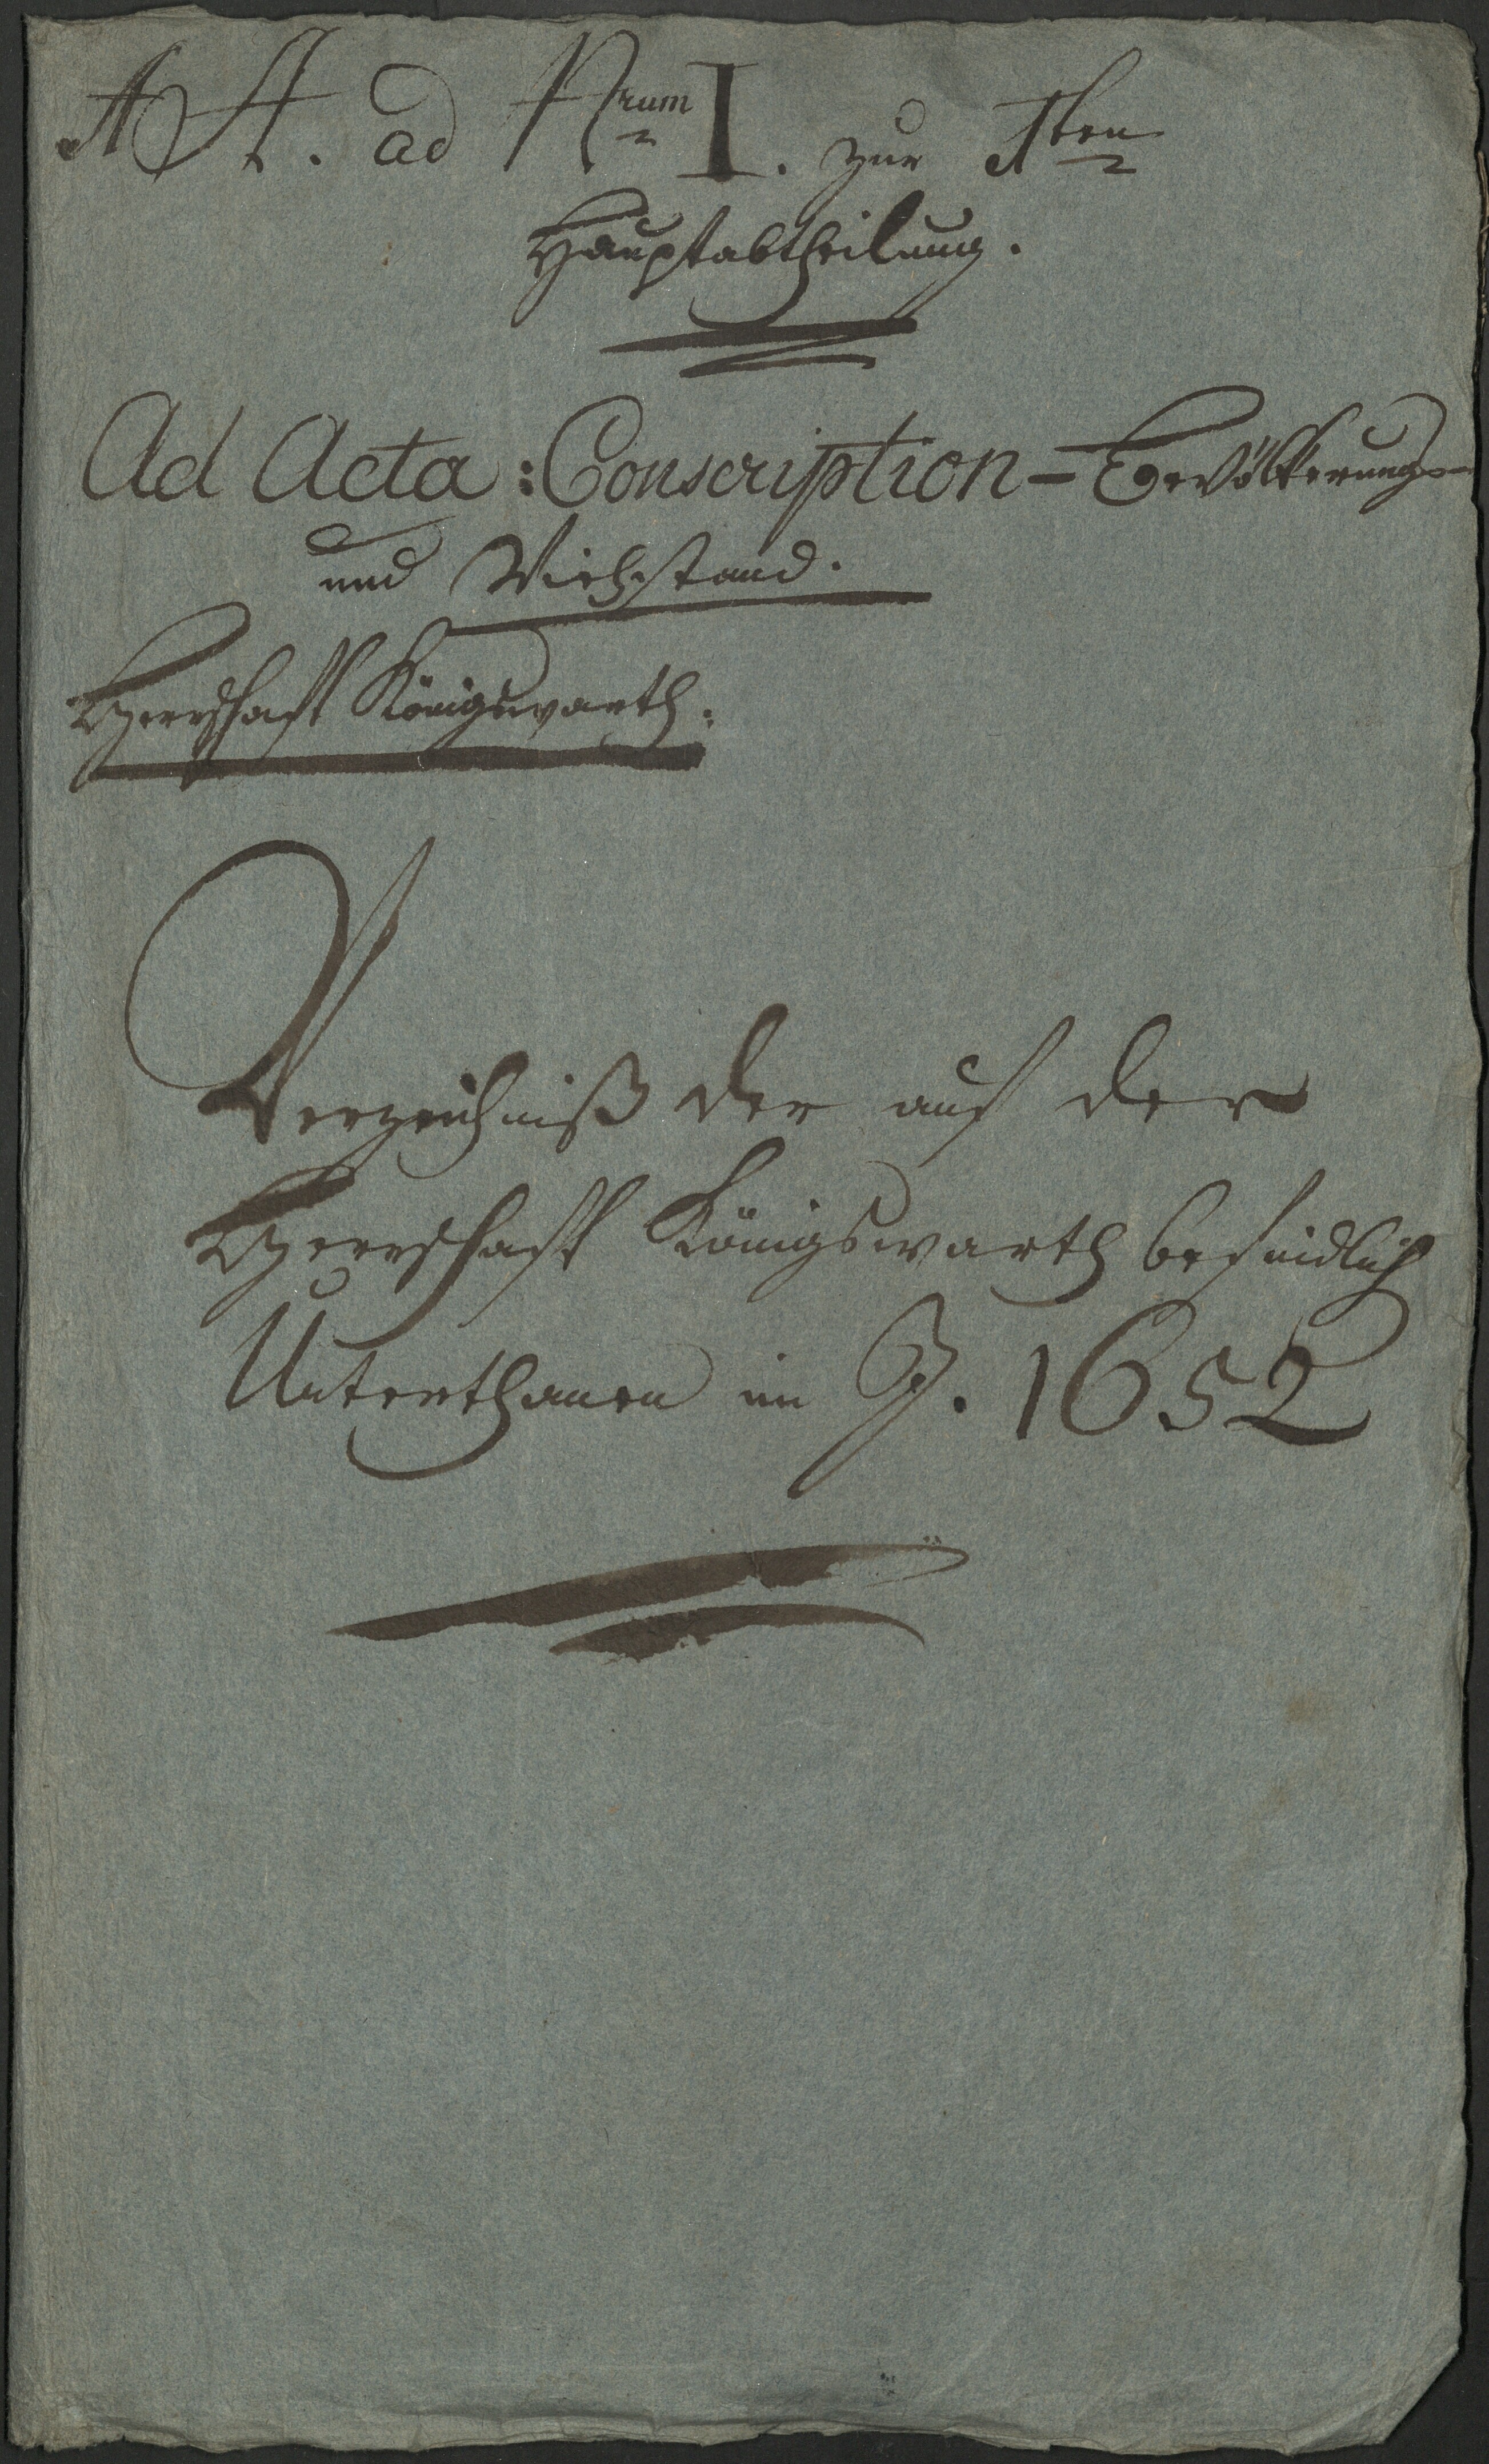 AA. ad Nrum I. zur 1ten
Hauptabtheilung.
Ad Acta: Conscription - Bevölkerungs-
und Viehstand.
Herrschaft Königswarth.
Verzeichniß der auf der
Herrschaft Königswarth befindlich
Unterthanen im J. 1652